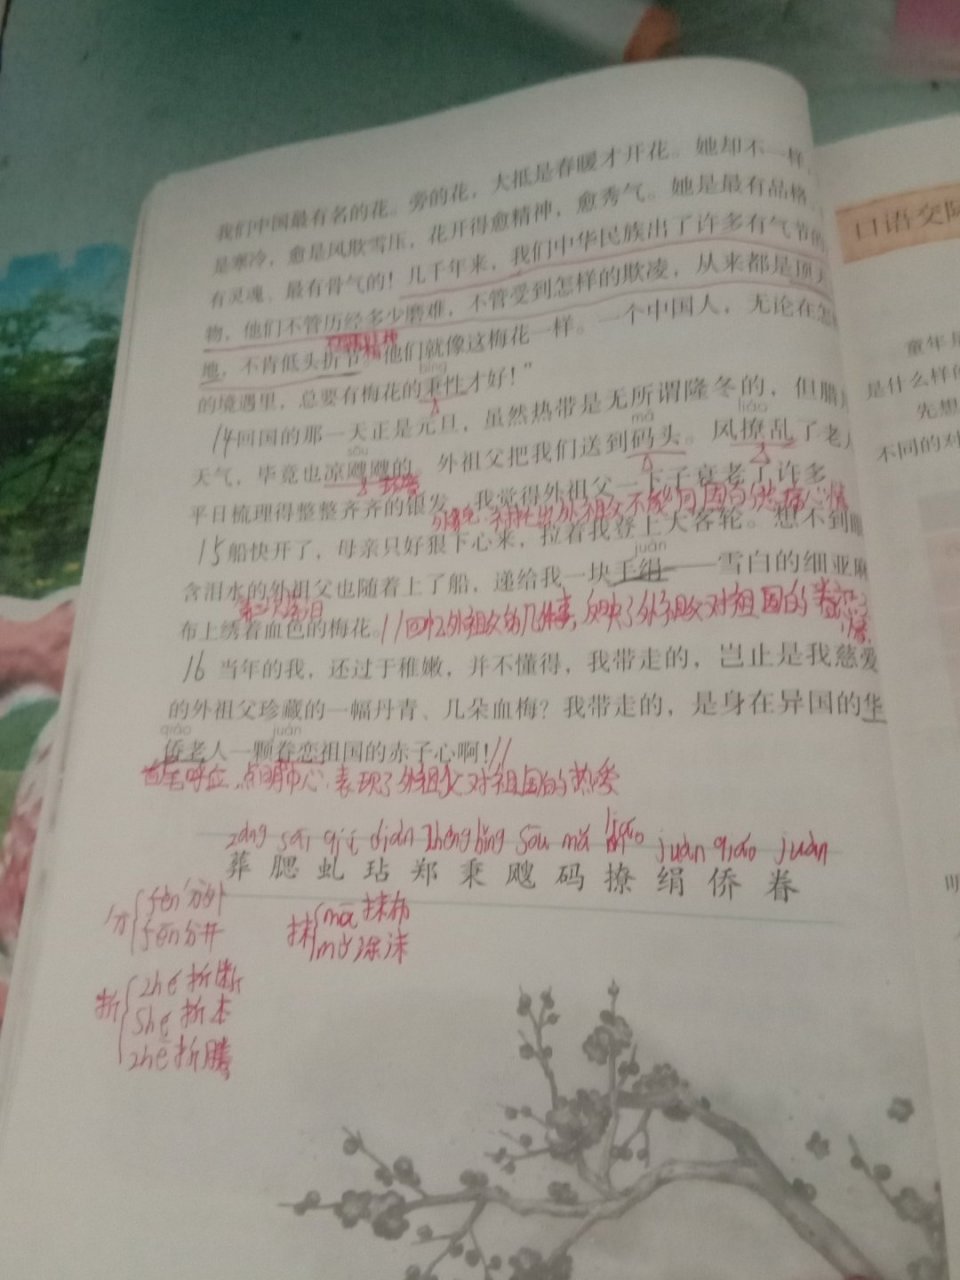 我们中国最有名的花。旁的花，大抵是春暖才开花。她却不一样，
是寒冷，愈是风欺雪压，花开得愈精神，愈秀气。她是最有品格、
有灵魂、最有骨气的！几千年来，我们中华民族出了许多有气节的
物，他们不管历经多少磨难，不管受到怎样的欺凌，从来都是顶天
地，不肯低头折节。他们就像这梅花一样。一个中国人，无论在怎
bǐng
的境遇里，总要有梅花的秉性才好！”
14回国的那一天正是元旦，虽然热带是无所谓隆冬的，但腊月
sōu mǎ liáo
天气，毕竟也凉飕飕的。外祖父把我们送到码头。风撩乱了老人
平日梳理得整整齐齐的银发，我觉得外祖父一下子衰老了许多。
15船快开了，母亲只好狠下心来，拉着我登上大客轮。想不到眼
juàn
含泪水的外祖父也随着上了船，递给我一块手绢——雪白的细亚麻
布上绣着血色的梅花。
16 当年的我，还过于稚嫩，并不懂得，我带走的，岂止是我慈爱
的外祖父珍藏的一幅丹青、几朵血梅？我带走的，是身在异国的华
qiáo juàn
侨老人一颗眷恋祖国的赤子心啊！
首尾呼应，点明中心，表现了外祖父对祖国的热爱
zàng sāi qiú diàn zhèng bǐng sōu mǎ liáo juàn qiáo juàn
葬 腮 虬 玷 郑 秉 飕 码 撩 绢 侨 眷
分 fèn 分外
fēn 分开
抹 mā 抹布
mǒ 涂沫
折 zhé 折断
shé 折本
zhē 折腾
口语交际
童年是
是什么样的
先想
不同的对